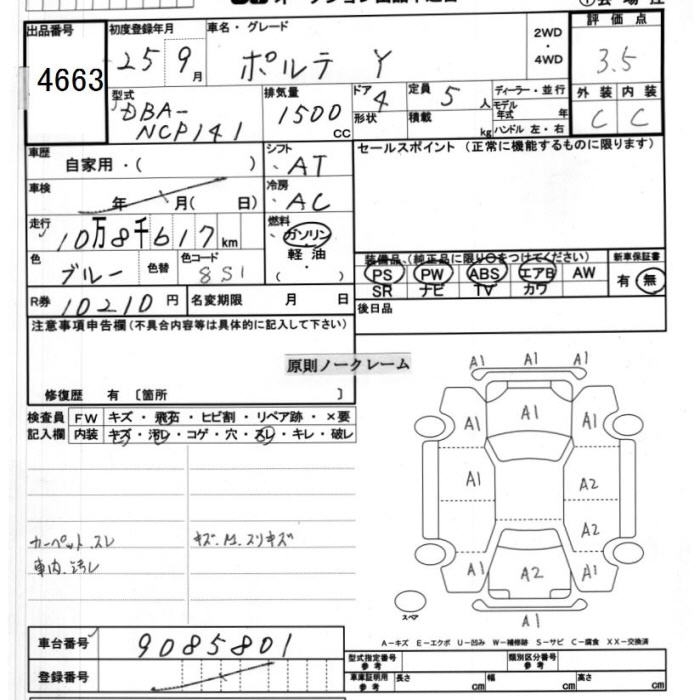 出品番号 初度登録年月 車名・グレード 2WD・4WD 評価点
4663 25 9月 ポルテ Y 3.5
型式 排気量 ドア 定員 ディーラー・並行 外装 内装
DBA-NCP141 1500cc 4 5人 モデル年式 年 C C
形状 積載 kg ハンドル 左・右
車歴 自家用・( ) シフト AT セールスポイント (正常に機能するものに限ります)
車検 年 月( 日) 冷房 AC
走行 10万8千617km 燃料 ガソリン
軽油
( )
色 ブルー 色替 色コード 8S1
装備品 (純正品に限り○をつけてください) 新車保証書
PS PW ABS エアB AW 有 無
SR ナビ TV カワ
R券 10210円 名変期限 月 日 後日品
注意事項申告欄(不具合内容等は具体的に記入して下さい)
原則ノークレーム
修復歴 有 〔箇所 〕
検査員記入欄 FW キズ・飛石・ヒビ割・リペア跡・×要
内装 キズ・汚レ・コゲ・穴・スレ・キレ・破レ
カーペット スレ
車内 汚レ
A1 A1 A1
A1 A1 A1
A1 A2
A2
A1 A2 A1
A1
スペア
A-キズ E-エクボ U-凹み W-補修跡 S-サビ C-腐食 XX-交換済
車台番号 9085801
登録番号
型式指定番号 参考 類別区分番号 参考
車庫証明用 参考 長さ cm 幅 cm 高さ cm